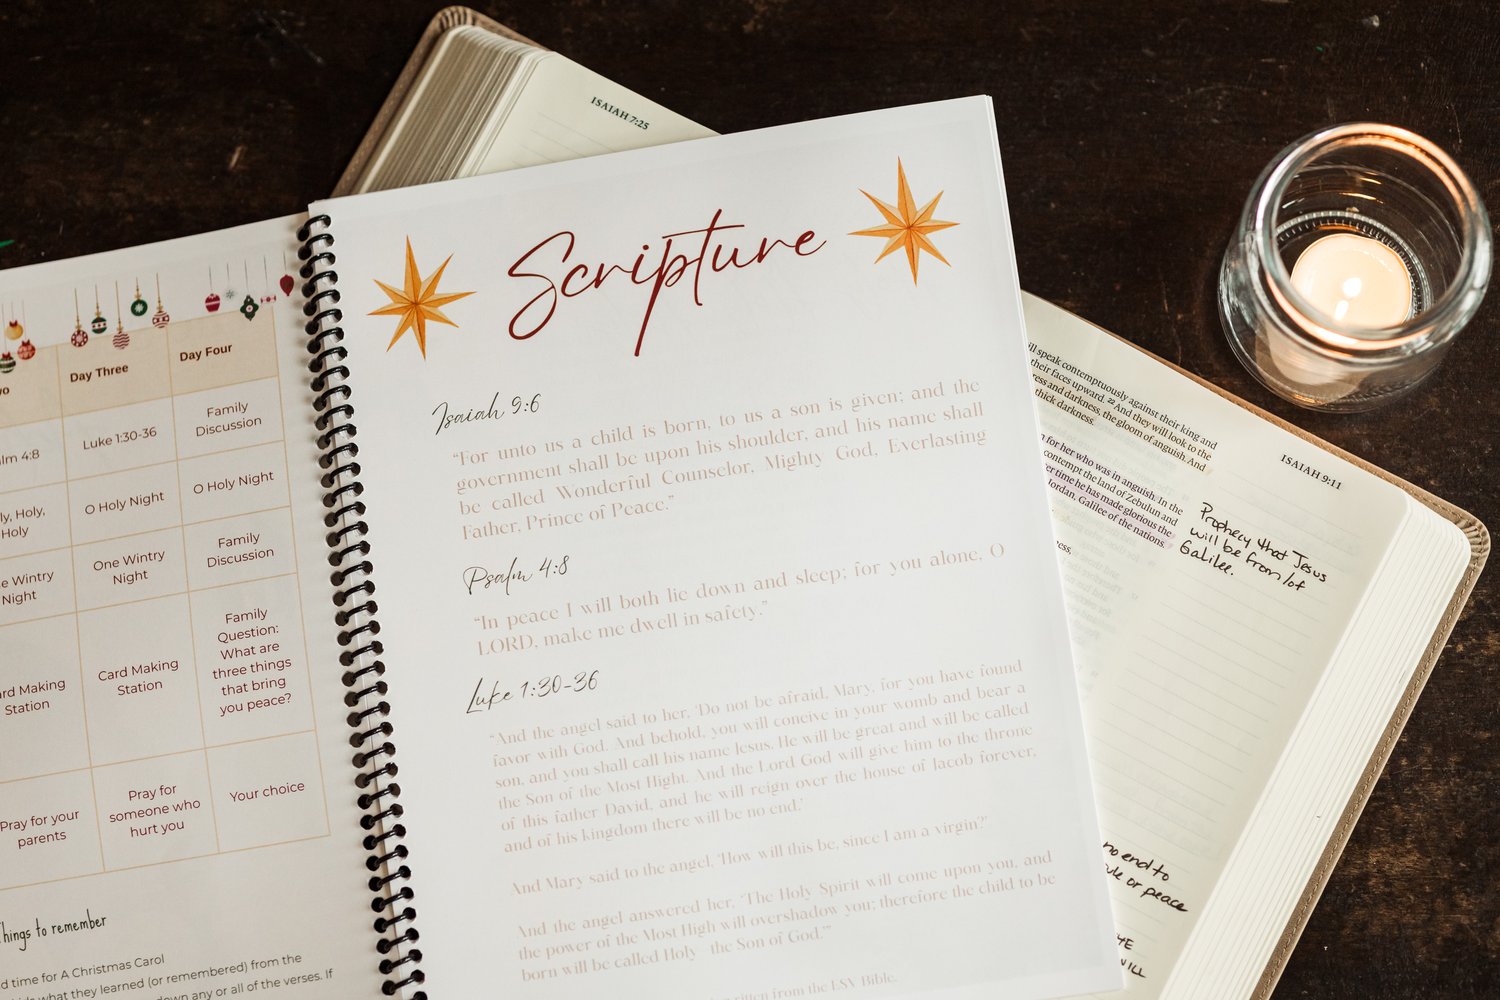 ISAIAH 7:25
Scripture
Isaiah 9:6
"For unto us a child is born, to us a son is given; and the
government shall be upon his shoulder, and his name shall
be called Wonderful Counselor, Mighty God, Everlasting
Father, Prince of Peace."
Psalm 4:8
"In peace I will both lie down and sleep; for you alone, O
LORD, make me dwell in safety."
Luke 1:30-36
"And the angel said to her, 'Do not be afraid, Mary, for you have found
favor with God. And behold, you will conceive in your womb and bear a
son, and you shall call his name Jesus. He will be great and will be called
the Son of the Most Hight. And the Lord God will give him to the throne
of this father David, and he will reign over the house of Jacob forever,
and of his kingdom there will be no end.'
And Mary said to the angel, 'How will this be, since I am a virgin?'
And the angel answered her, 'The Holy Spirit will come upon you, and
the power of the Most High will overshadow you; therefore the child to be
born will be called Holy - the Son of God.'"
written from the ESV Bible.
Day Three
Day Four
4:8
Luke 1:30-36
Family
Discussion
Holy,
Holy
O Holy Night
O Holy Night
Wintry
Night
One Wintry
Night
Family
Discussion
Making
Station
Card Making
Station
Family
Question:
What are
three things
that bring
you peace?
Pray for your
parents
Pray for
someone who
hurt you
Your choice
Things to remember
time for A Christmas Carol
what they learned (or remembered) from the
down any or all of the verses. If
will speak contemptuously against their king and
their faces upward. 22 And they will look to the
and darkness, the gloom of anguish. And
thick darkness.
for her who was in anguish. In the
contempt the land of Zebulun and
time he has made glorious the
Jordan, Galilee of the nations.
ISAIAH 9:11
Prophecy that Jesus
will be from/of
Galilee.
no end to
or peace